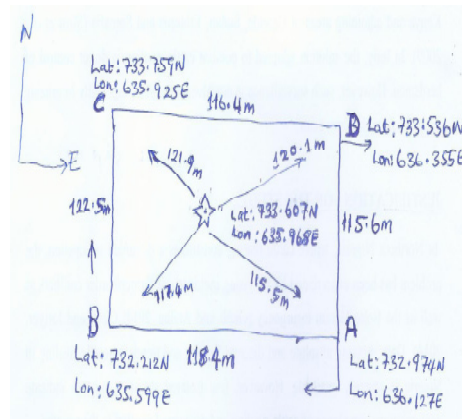 N
Lat: 733.759N
Lon: 635.925E
C
116.4m
D
Lat: 733.536N
Lon: 636.355E
E
121.9m
120.1m
122.5m
Lat: 733.607N
Lon: 635.968E
115.6m
117.4m
115.5m
B
A
Lat: 732.212N
Lon: 635.599E
118.4m
Lat: 732.974N
Lon: 636.127E